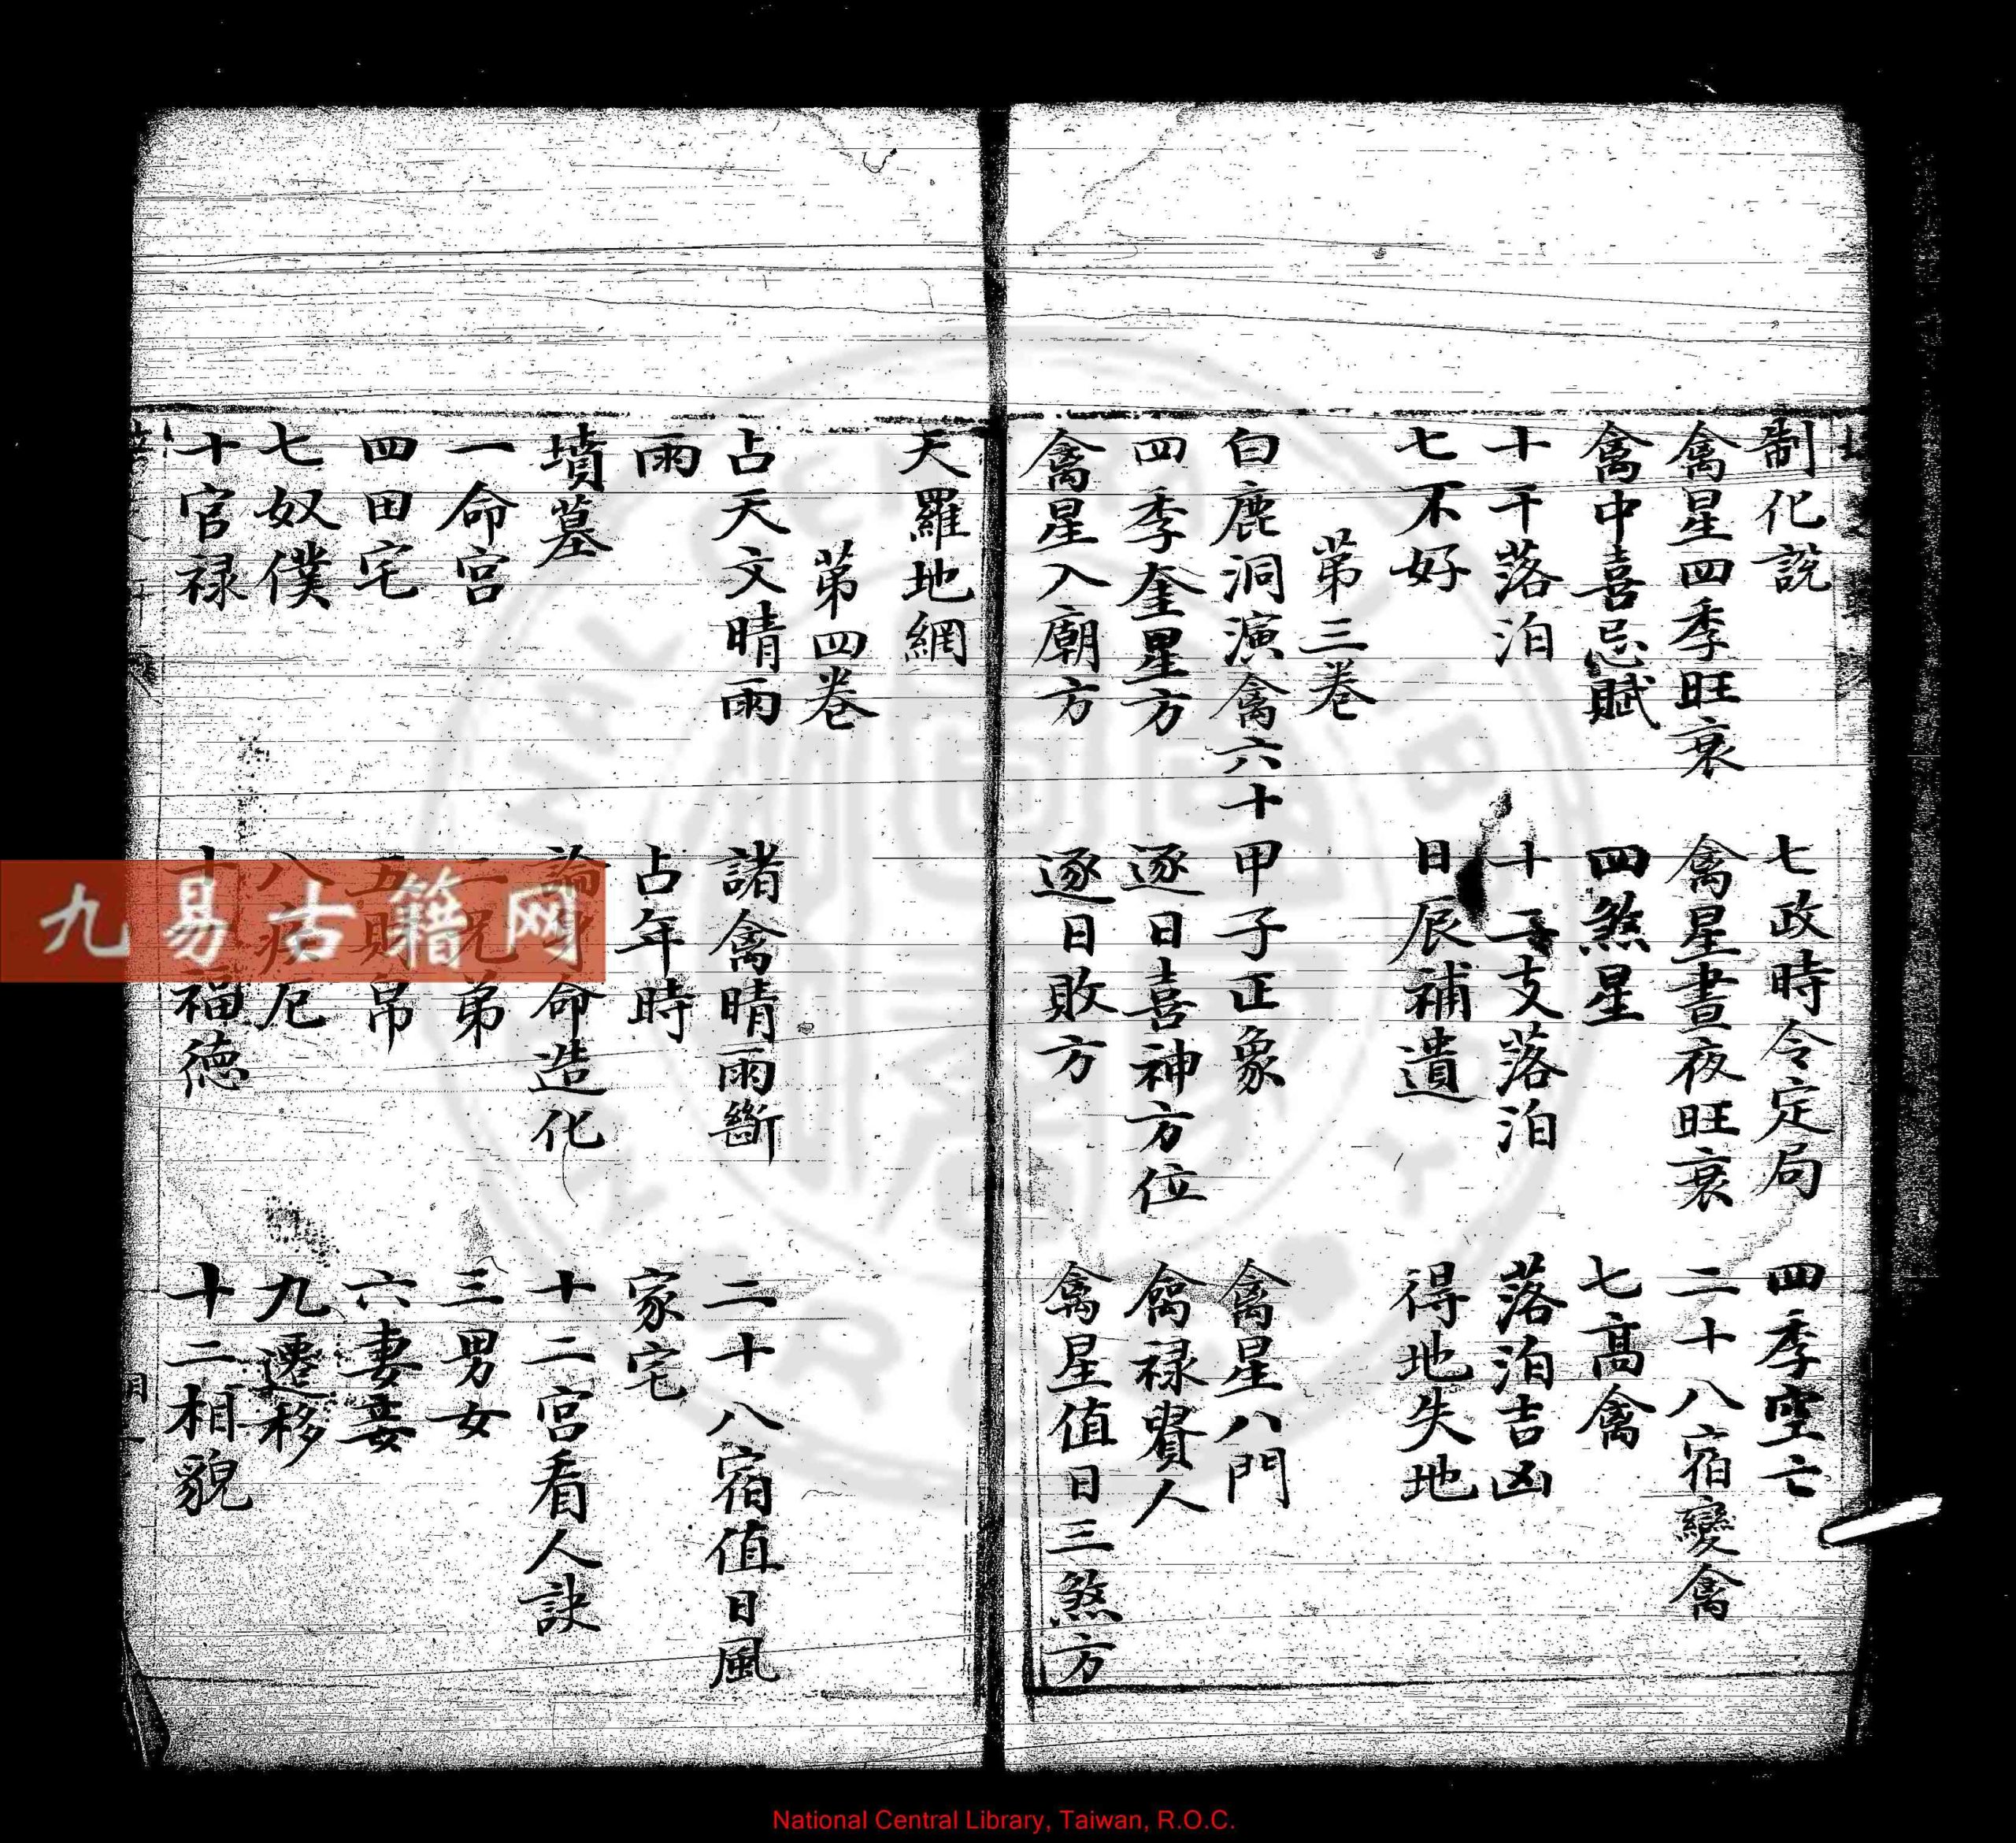 制化說　七政時令定局　四季空亡
禽星四季旺衰　禽星晝夜旺衰　二十八宿變禽
禽中喜忌賦　四煞星　七高禽
十干落泊　十二支落泊　落泊吉凶
七不好　日辰補遺　得地失地
第三卷
白鹿洞演禽六十甲子正象　禽星八門
四季奎星方　逐日喜神方位　禽禄貴人
禽星入廟方　逐日敗方　禽星值日三煞方
天羅地網
第四卷
占天文晴雨　諸禽晴雨斷　二十八宿值日風
雨　占年時　家宅
墳墓　論命造化　十二宮看人訣
一命宮　二兄弟　三男女
四田宅　五財帛　六妻妾
七奴僕　八疾厄　九遷移
十官禄　福德　十二相貌
九易古籍网
National Central Library, Taiwan, R.O.C.